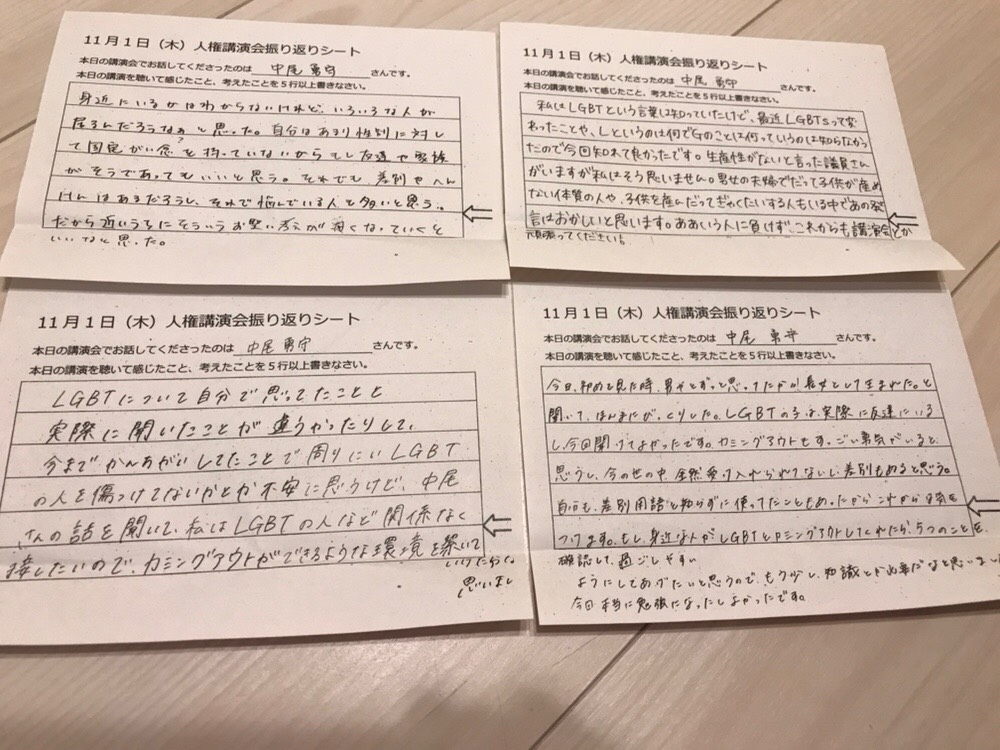 11月1日（木）人権講演会振り返りシート
本日の講演会でお話してくださったのは 中尾 勇守 さんです。
本日の講演を聴いて感じたこと、考えたことを5行以上書きなさい。
身近にいるかはわからないけれど、いろいろな人が
居るんだろうなぁと思った。自分はあまり性別に対し
て固定がい念を持っていないからもし友達や家族
がそうであってもいいと思う。それでも差別やへん
けんはあるだろうし、それで悩んでいる人も多いと思う。
だから近いうちにそういうお堅い考えが薄くなっていくと
いいなと思った。
11月1日（木）人権講演会振り返りシート
本日の講演会でお話してくださったのは 中尾 勇守 さんです。
本日の講演を聴いて感じたこと、考えたことを5行以上書きなさい。
私はLGBTという言葉は知っていたけど、最近LGBTsって変
わったことや、Lというのは何でGのことは何っていうのは知らなかっ
たので今回知れて良かったです。生産性がないと言った議員さん
がいますが私はそう思いません。男女の夫婦でだって子供が産め
ない体質の人や、子供を産んだってぎゃくたいする人もいる中であの発
言はおかしいと思います。ああいう人に負けず、これからも講演会とか
頑張ってください!
11月1日（木）人権講演会振り返りシート
本日の講演会でお話してくださったのは 中尾 勇守 さんです。
本日の講演を聴いて感じたこと、考えたことを5行以上書きなさい。
LGBTについて自分で思ってたことと
実際に聞いたことが違うかったりして、
今までかんちがいしてたことで周りにいLGBT
の人を傷つけてないかとか不安に思うけど、中尾
さんの話を聞いて、私はLGBTの人など関係なく
接したいので、カミングアウトができるような環境を築いて
いけたらと
思いまし
11月1日（木）人権講演会振り返りシート
本日の講演会でお話してくださったのは 中尾 勇守 さんです。
本日の講演を聴いて感じたこと、考えたことを5行以上書きなさい。
今日、初めて見た時、男やとずっと思ってたから長女として生まれた。と
聞いて、ほんまにびっくりした。LGBTの子は、実際に友達にいる
し、今回聞けてよかったです。カミングアウトもすっごい勇気がいると、
思うし、今の世の中、全然受け入れられてないし、差別もあると思う。
自分も、差別用語と知らずに使ってたこともあったからこれから気を
つけます。もし、身近な人がLGBTとカミングアウトしてくれたら、5つのことを、
確認して、過ごしやすい
ようにしてあげたいと思うので、もう少し、知識とか必要だなと思いまし
今日、本当に勉強になったしよかったです。